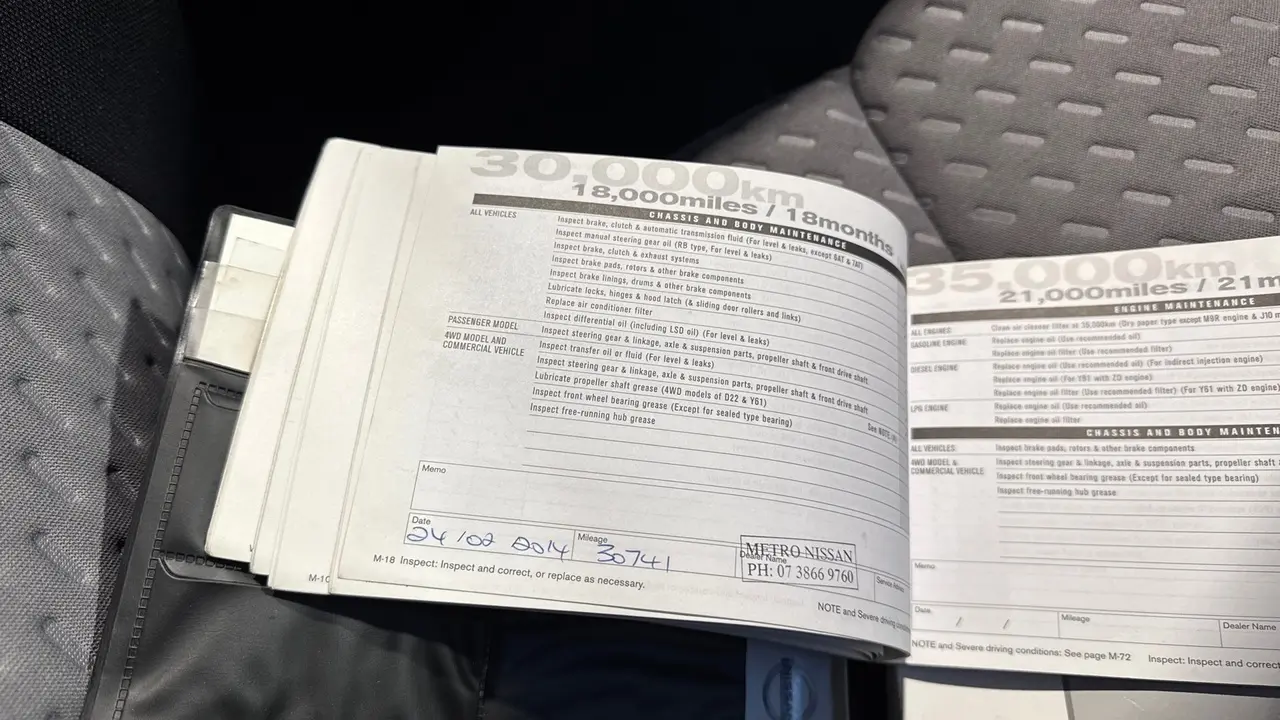 30,000km
18,000miles / 18months
CHASSIS AND BODY MAINTENANCE
ALL VEHICLES
Inspect brake, clutch & automatic transmission fluid (For level & leaks, except 6AT & 7AT)
Inspect manual steering gear oil (RB type, For level & leaks)
Inspect brake, clutch & exhaust systems
Inspect brake pads, rotors & other brake components
Inspect brake linings, drums & other brake components
Lubricate locks, hinges & hood latch (& sliding door rollers and links)
Replace air conditioner filter
PASSENGER MODEL
Inspect differential oil (including LSD oil) (For level & leaks)
Inspect steering gear & linkage, axle & suspension parts, propeller shaft & front drive shaft
4WD MODEL AND
COMMERCIAL VEHICLE
Inspect transfer oil or fluid (For level & leaks)
Inspect steering gear & linkage, axle & suspension parts, propeller shaft & front drive shaft
Lubricate propeller shaft grease (4WD models of D22 & Y61)
Inspect front wheel bearing grease (Except for sealed type bearing)
See NOTE
Inspect free-running hub grease
Memo
Date
24/02 2014
Mileage
30741
Dealer Name
METRO NISSAN
PH: 07 3866 9760
M-18 Inspect: Inspect and correct, or replace as necessary.
NOTE and Severe driving
M-10
35,000km
21,000miles / 21m
ENGINE MAINTENANCE
ALL ENGINES
Clean air cleaner filter at 35,000km (Dry paper type except M9R engine & J10
GASOLINE ENGINE
Replace engine oil (Use recommended oil)
Replace engine oil filter (Use recommended filter)
DIESEL ENGINE
Replace engine oil (Use recommended oil) (For indirect injection engine)
Replace engine oil (For Y61 with ZD engine)
Replace engine oil filter (Use recommended filter) (For Y61 with ZD engine)
LPG ENGINE
Replace engine oil (Use recommended oil)
Replace engine oil filter
CHASSIS AND BODY MAINTEN
ALL VEHICLES
Inspect brake pads, rotors & other brake components
4WD MODEL &
COMMERCIAL VEHICLE
Inspect steering gear & linkage, axle & suspension parts, propeller shaft
Inspect front wheel bearing grease (Except for sealed type bearing)
Inspect free-running hub grease
Memo
Date
/ /
Mileage
Dealer Name
NOTE and Severe driving conditions: See page M-72 Inspect: Inspect and correct
NISSAN